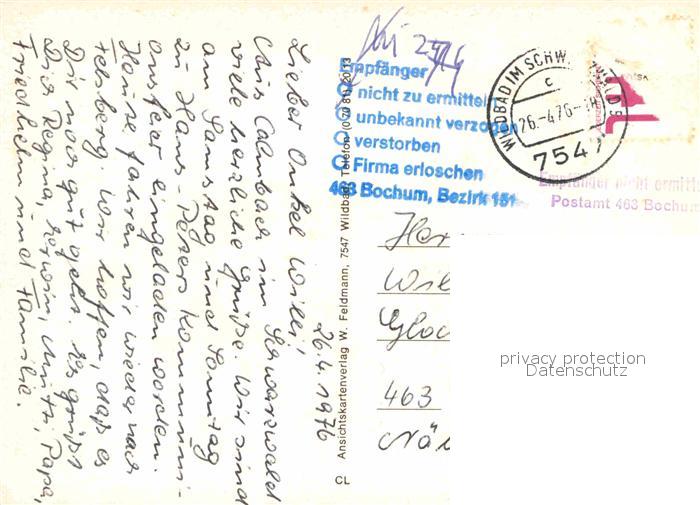 26.4.1976
Lieber Onkel Willi!
Aus Calmbach im Schwarzwald
viele herzliche Grüße. Wir sind
am Samstag und Sonntag
zu Hans-Peters Kommuni-
onsfeier eingeladen worden.
Heute fahren wir wieder nach
berg. Wir hoffen, daß es
Dir noch gut geht. Es grüßt
Dich Regina, Erwin, Mutti, Papa,
Friedhelm und Familie.
Ansichtskartenverlag W. Feldmann, 7547 Wildbad, Telefon (070 81) 20 13
CL
Empfänger
nicht zu ermitteln
unbekannt verzogen
verstorben
Firma erloschen
463 Bochum, Bezirk 151
WILDBAD IM SCHW
c
26.-4.76
7547
Empfänger nicht ermitte
Postamt 463 Bochum
Her
Wil
Gloc
463
privacy protection
Datenschutz